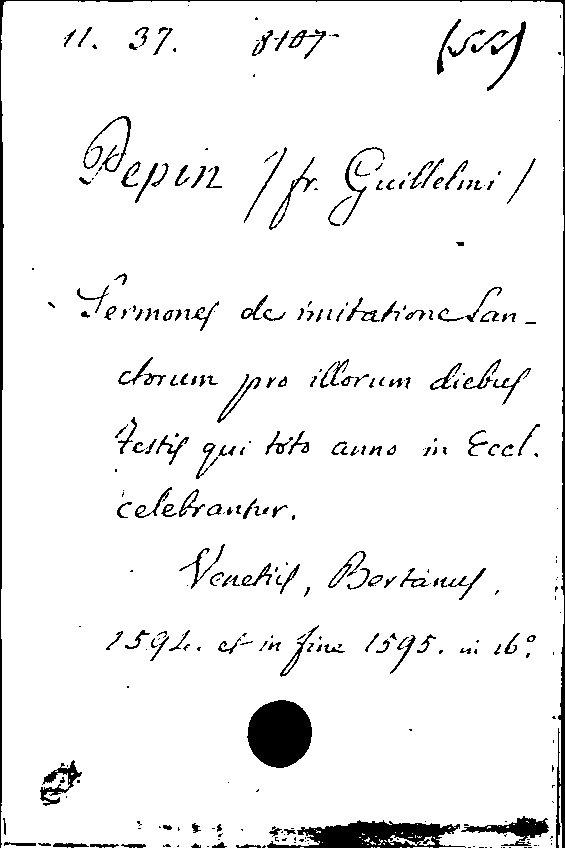 11. 37. 8107 (SS)
Pepin / fr. Guillelmi /
Sermones de imitatione San-
ctorum pro illorum diebus
festis qui toto anno in Eccl.
celebrantur.
Venetiis, Bertanus,
1594. et in fine 1595. in 16º.